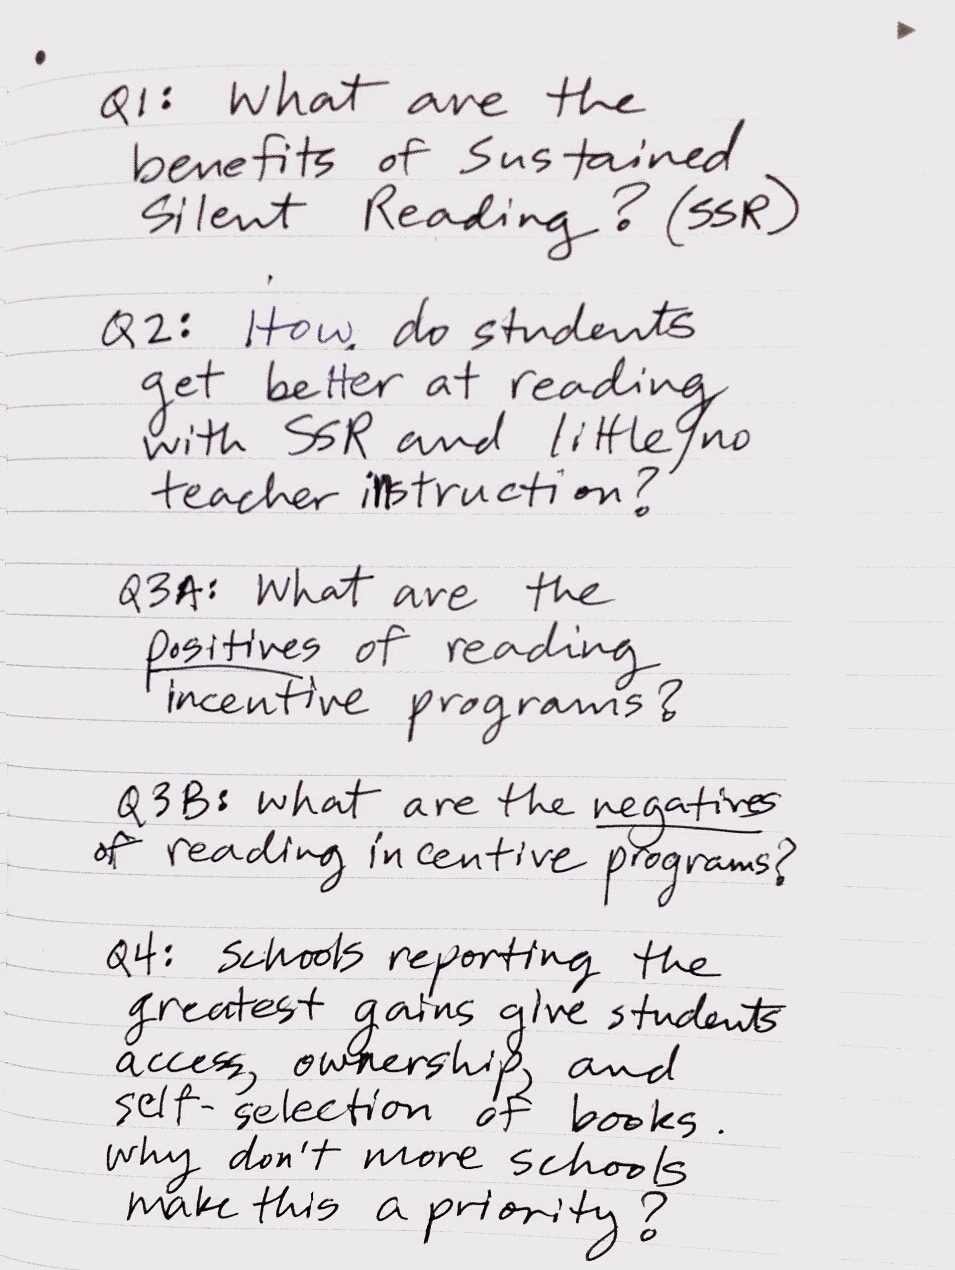 Q1: What are the
benefits of Sustained
Silent Reading? (SSR)
Q2: How do students
get better at reading
with SSR and little/no
teacher instruction?
Q3A: What are the
positives of reading
incentive programs?
Q3B: What are the negatives
of reading incentive programs?
Q4: Schools reporting the
greatest gains give students
access, ownership, and
self-selection of books.
Why don't more schools
make this a priority?